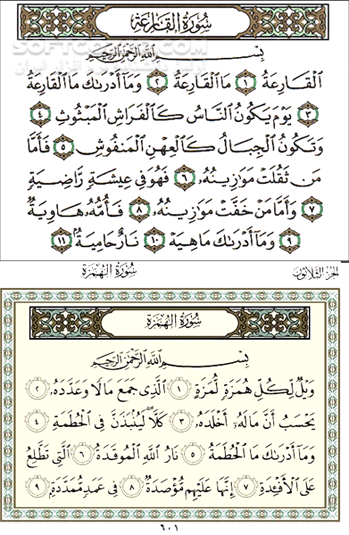 سُورَةُ القَارِعَة
بِسْمِ اللَّهِ الرَّحْمَٰنِ الرَّحِيمِ
ٱلْقَارِعَةُ ١ مَا ٱلْقَارِعَةُ ٢ وَمَآ أَدْرَىٰكَ مَا ٱلْقَارِعَةُ
٣ يَوْمَ يَكُونُ ٱلنَّاسُ كَٱلْفَرَاشِ ٱلْمَبْثُوثِ ٤
وَتَكُونُ ٱلْجِبَالُ كَٱلْعِهْنِ ٱلْمَنفُوشِ ٥ فَأَمَّا
مَن ثَقُلَتْ مَوَٰزِينُهُۥ ٦ فَهُوَ فِى عِيشَةٍ رَّاضِيَةٍ
٧ وَأَمَّا مَنْ خَفَّتْ مَوَٰزِينُهُۥ ٨ فَأُمُّهُۥ هَاوِيَةٌ
٩ وَمَآ أَدْرَىٰكَ مَا هِيَهْ ١٠ نَارٌ حَامِيَةٌۢ ١١
الجزء الثلاثون سُورَةُ الهُمَزَة
سُورَةُ الهُمَزَة
بِسْمِ اللَّهِ الرَّحْمَٰنِ الرَّحِيمِ
وَيْلٌ لِّكُلِّ هُمَزَةٍ لُّمَزَةٍ ١ ٱلَّذِى جَمَعَ مَالًا وَعَدَّدَهُۥ ٢
يَحْسَبُ أَنَّ مَالَهُۥٓ أَخْلَدَهُۥ ٣ كَلَّا ۖ لَيُنۢبَذَنَّ فِى ٱلْحُطَمَةِ ٤
وَمَآ أَدْرَىٰكَ مَا ٱلْحُطَمَةُ ٥ نَارُ ٱللَّهِ ٱلْمُوقَدَةُ ٦ ٱلَّتِى تَطَّلِعُ
عَلَى ٱلْأَفْـِٔدَةِ ٧ إِنَّهَا عَلَيْهِم مُّؤْصَدَةٌ ٨ فِى عَمَدٍ مُّمَدَّدَةٍۭ ٩
٦٠١